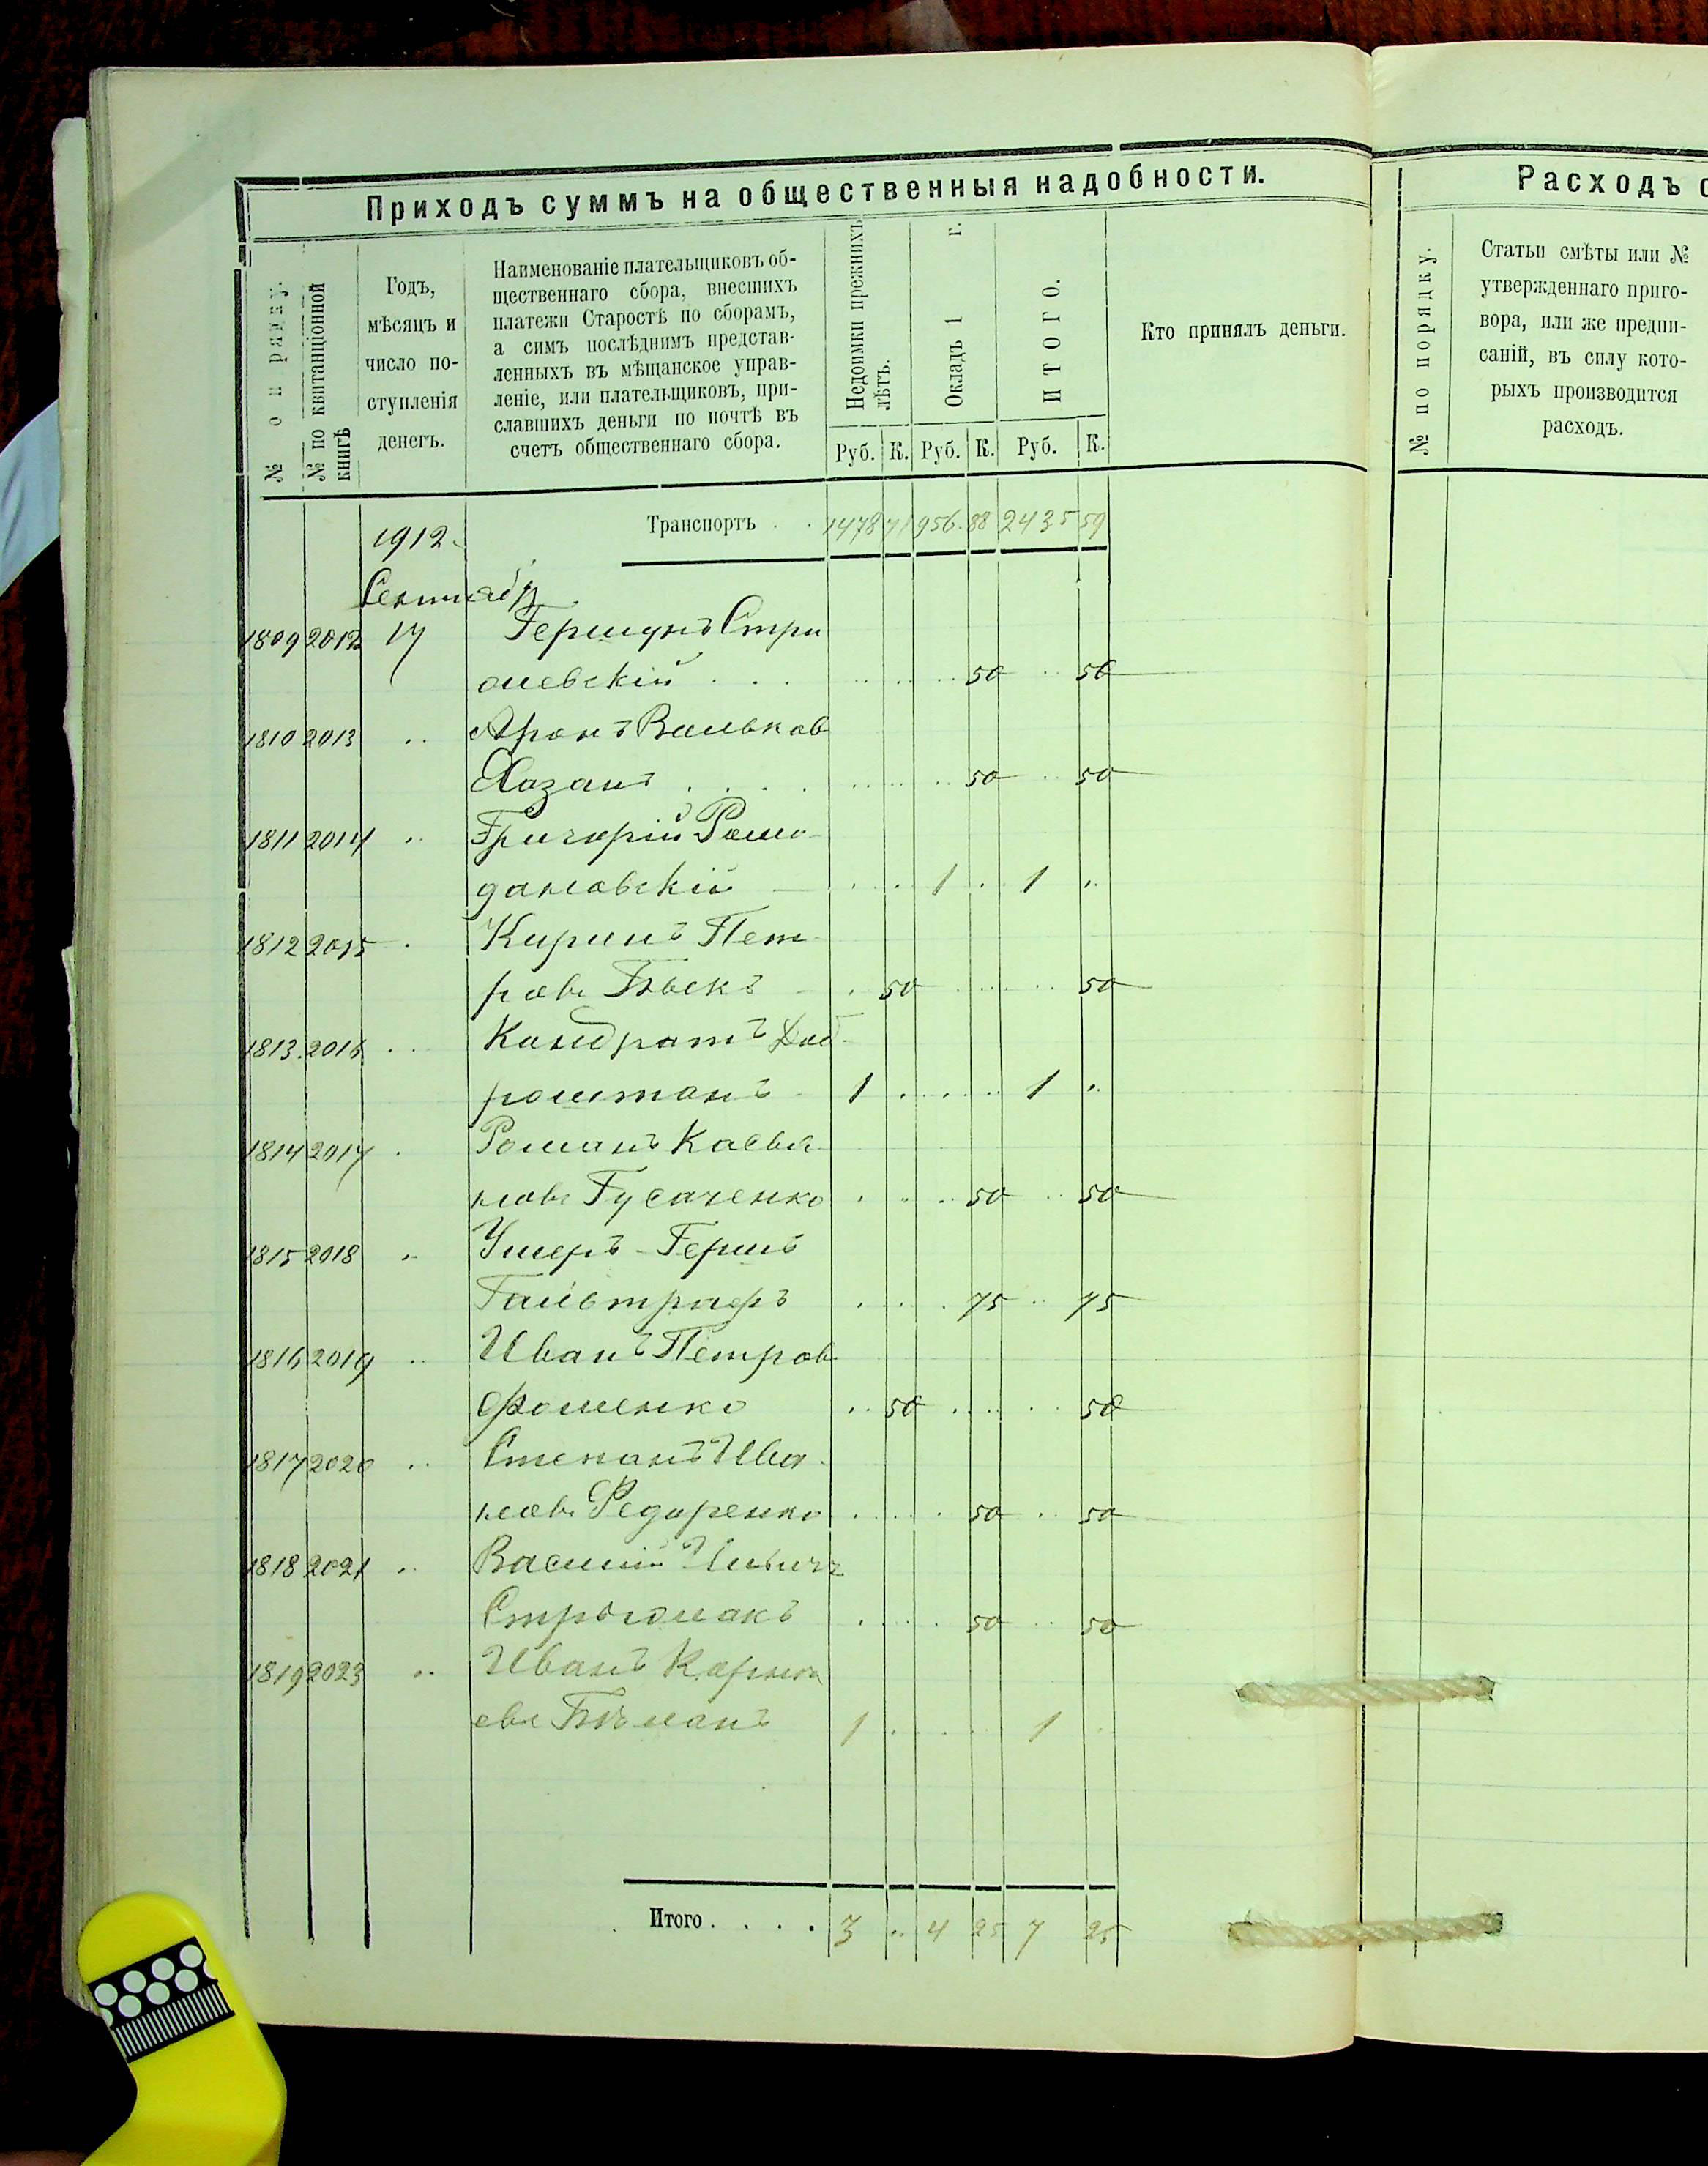 Приходъ суммъ на общественныя надобности.
№ по ряду.
№ по квитанціонной книгѣ
Годъ,
мѣсяцъ и
число по-
ступленія
денегъ.
Наименованіе плательщиковъ об-
щественнаго сбора, внесшихъ
платежи Старостѣ по сборамъ,
а симъ послѣднимъ представ-
ленныхъ въ мѣщанское управ-
леніе, или плательщиковъ, при-
славшихъ деньги по почтѣ въ
счетъ общественнаго сбора.
Недоимки прежнихъ лѣтъ.
Окладъ 1 г.
ИТОГО.
Руб. К. Руб. К. Руб. К.
Кто принялъ деньги.
Транспортъ . . 1478 71 956 88 2435 59
1912
Сентябр
1809 2012 17 Гершунъ Стри
шевскій . . . 50 50
1810 2013 Аронъ Вольков
Хазанъ . . . . 50 50
1811 2014 Григорій Ромо-
дановскій 1 1
1812 2015 Кирилъ Пет
ровъ 50 50
1813 2016 Кондратъ Доб
роштанъ 1 1
1814 2017 Романъ Касья
новъ Гусаченко 50 50
1815 2018 Ушеръ-Гершъ
75 75
1816 2019 Иванъ Петров
Фоменко 50 50
1817 2020 Степанъ Ива
новъ Федоренко 50 50
1818 2021 Василій Ильичъ
50 50
1819 2023 Иванъ Корнѣ
евъ 1 1
Итого . . . . 3 4 25 7 25
Расходъ с
№ по порядку.
Статьи смѣты или №
утвержденнаго приго-
вора, или же предпи-
саній, въ силу кото-
рыхъ производится
расходъ.